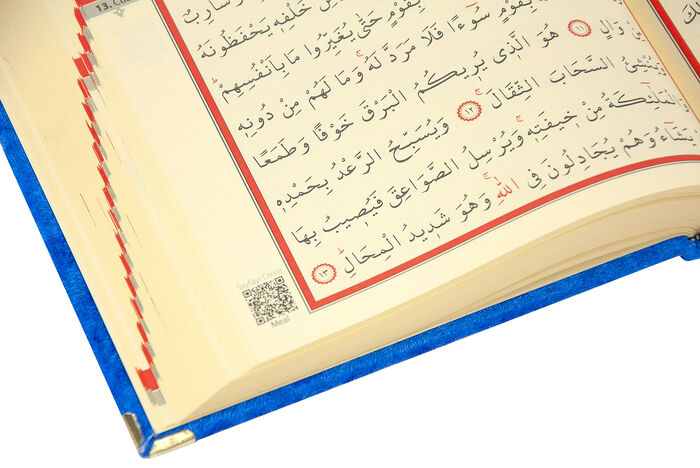 13. Cü
وَسَارِبٌ
خَلْفِه۪ يَحْفَظُونَهُ
بِقَوْمٍ حَتّٰى يُغَيِّرُوا مَا بِاَنْفُسِهِمْۜ
بِقَوْمٍ سُٓوءًا فَلَا مَرَدَّ لَهُۚ وَمَا لَهُمْ مِنْ دُونِه۪
مِنْ وَالٍ ﴿١١﴾ هُوَ الَّذ۪ي يُر۪يكُمُ الْبَرْقَ خَوْفًا وَطَمَعًا
وَيُنْشِئُ السَّحَابَ الثِّقَالَۚ ﴿١٢﴾ وَيُسَبِّحُ الرَّعْدُ بِحَمْدِه۪
وَالْمَلٰٓئِكَةُ مِنْ خ۪يفَتِه۪ۚ وَيُرْسِلُ الصَّوَاعِقَ فَيُص۪يبُ بِهَا
يَشَٓاءُ وَهُمْ يُجَادِلُونَ فِي اللّٰهِۚ وَهُوَ شَد۪يدُ الْمِحَالِۜ ﴿١٣﴾
Sayfayı Dinle
Meal